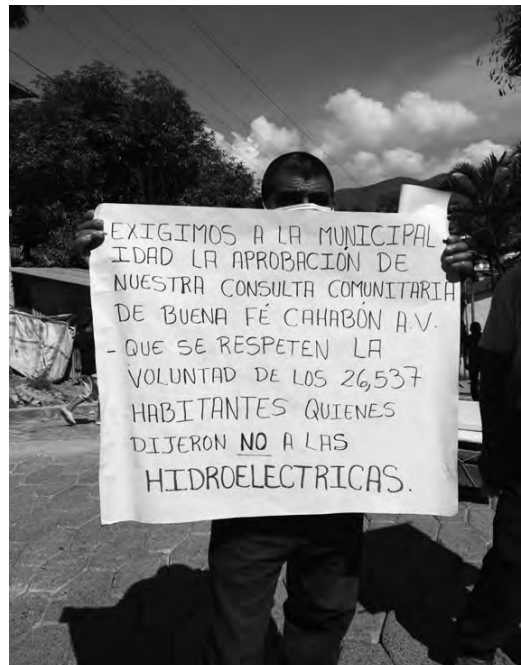 -EXIGIMOS A LA MUNICIPAL
IDAD LA APROBACIÓN DE
NUESTRA CONSULTA COMUNITARIA
DE BUENA FÉ CAHABÓN A.V.
- QUE SE RESPETEN LA
VOLUNTAD DE LOS 26,537
HABITANTES QUIENES
DIJERON NO A LAS
HIDROELECTRICAS.